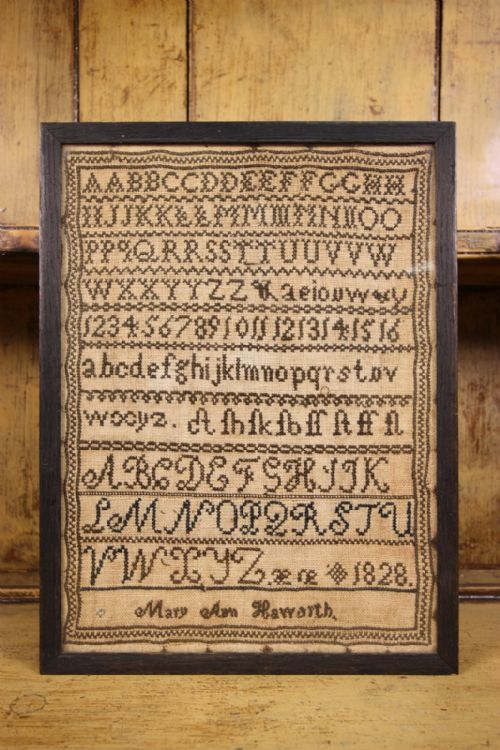 AABBCCDDEEFFGGHH
IIJJKKLLMMMMNNOO
PPQQRRSSTTUUVVW
WXXYYZZ & aeiouwy
12345678910111213141516
abcdefghijklmnopqrstuv
wxyz.
ABCDEFGHIJK
LMNOPQRSTU
VWXYZ æ œ 1828.
Mary Ann Haworth.